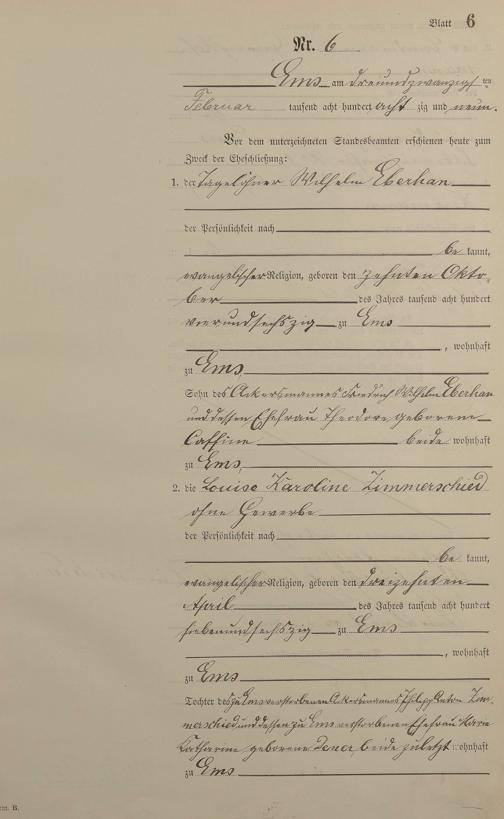 Blatt 6
Nr. 6
Ems am dreiundzwanzigsten
Februar tausend acht hundert acht zig und neun.
Vor dem unterzeichneten Standesbeamten erschienen heute zum
Zweck der Eheschließung:
1. der Tagelöhner Wilhelm Eberhan
der Persönlichkeit nach
be kannt,
evangelischer Religion, geboren den zehnten Okto-
ber des Jahres tausend acht hundert
vierundsechszig zu Ems
, wohnhaft
zu Ems
Sohn des Ackersmannes Friedrich Wilhelm Eberhan
und dessen Ehefrau Theodore geborene
beide wohnhaft
zu Ems,
2. die Louise Karoline Zimmerschied
ohne Gewerbe
der Persönlichkeit nach
be kannt,
evangelischer Religion, geboren den dreizehnten
April des Jahres tausend acht hundert
siebenundsechszig zu Ems
, wohnhaft
zu Ems
Tochter des zu Ems verstorbenen Ackersmannes Philipp Anton Zim-
merschied und dessen zu Ems verstorbenen Ehefrau
Katharine geborene beide zuletzt wohnhaft
zu Ems
B.